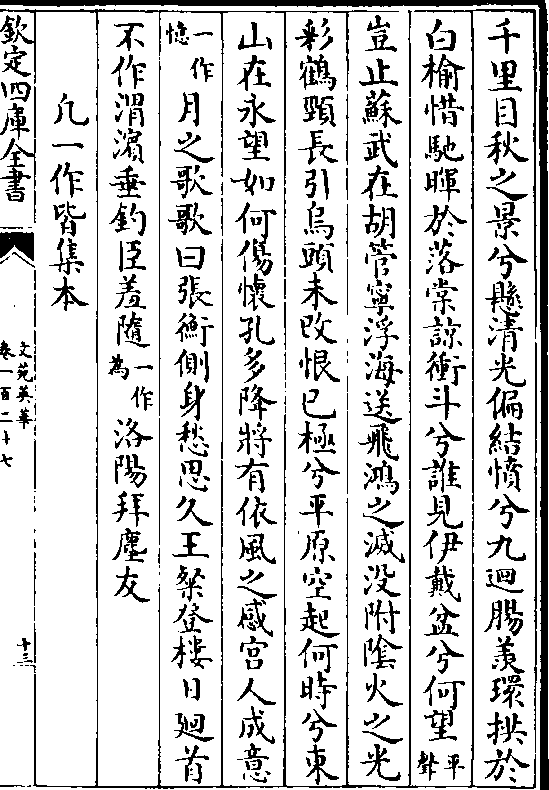 千里目秋之景兮懸清光偏結憤兮九迴腸羨環拱於
白榆惜馳暉於落棠諒衝斗兮誰見伊戴盆兮何望平聲
豈止蘇武在胡管寧浮海送飛鴻之滅没附陰火之光
彩鶴頸長引烏頭未改恨已極兮平原空起何時兮東
山在永望如何傷懷孔多降將有依風之感宫人成意
一作憶月之歌歌曰張衡側身愁思久王粲登樓日廻首
不作渭濱垂釣臣羞隨一作為洛陽拜塵友
凡一作皆集本
欽定四庫全書
文苑英華
卷一百二十七
十三